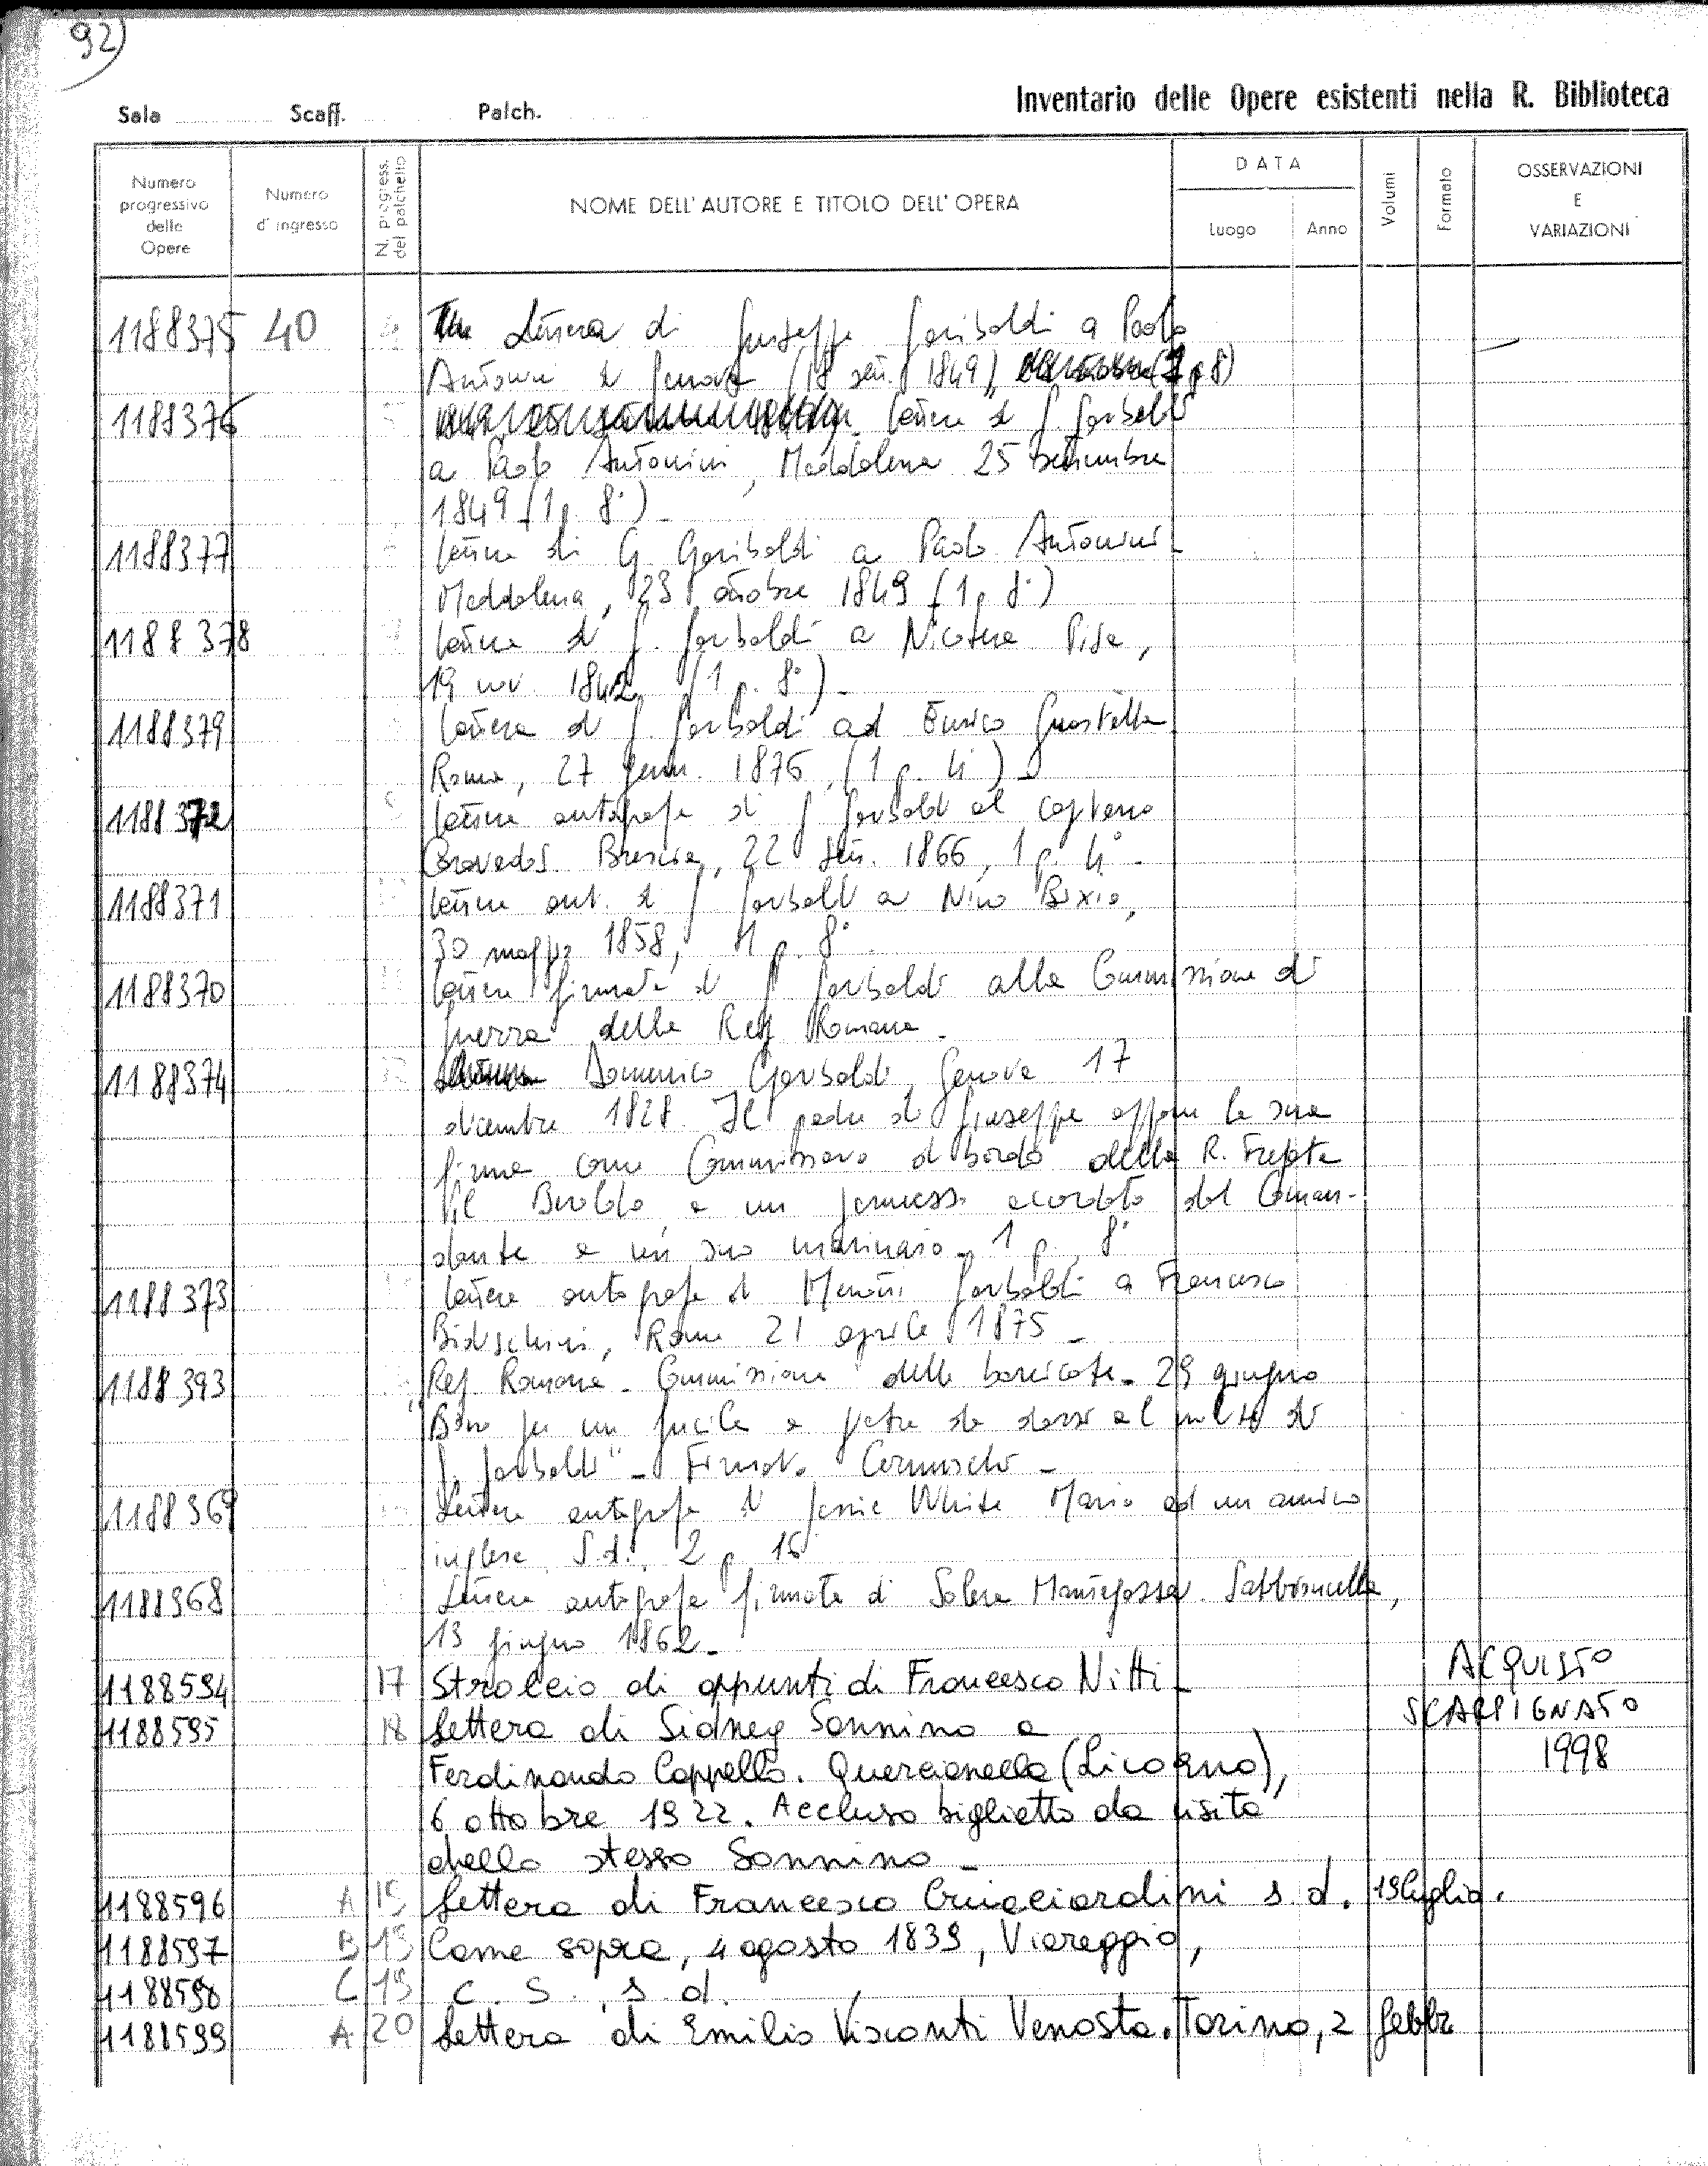 92)
Inventario delle Opere esistenti nella R. Biblioteca
Sala Scaff. Palch.
Numero progressivo delle Opere
Numero d'ingresso
N. progress. del palchetto
NOME DELL'AUTORE E TITOLO DELL'OPERA
DATA
Luogo Anno
Volumi
Formato
OSSERVAZIONI E VARIAZIONI
1188375 40 Lettera di Giuseppe Garibaldi a Paolo
Antonini di Genova (18 sett. 1849)
1188376 lettera di G. Garibaldi
a Paolo Antonini, Maddalena 25 settembre
1849 (1 p. 8°)
1188377 lettera di G. Garibaldi a Paolo Antonini
Maddalena, 23 ottobre 1849 (1 p. 8°)
1188378 lettera di G. Garibaldi a Nicotera Pisa,
19 nov. 1862 (1 p. 8°)
1188379 lettera di G. Garibaldi ad Enrico Guastalla
Roma, 27 genn. 1876, (1 p. 4°)
1188372 lettera autografa di G. Garibaldi al capitano
Brescia, 22 sett. 1866, 1 p. 4°
1188371 lettera aut. di G. Garibaldi a Nino Bixio,
30 maggio 1858, 1 p. 8°
1188370 lettera firmata di G. Garibaldi alla Commissione di
guerra della Rep. Romana.
1188374 Domenico Garibaldi, Genova 17
dicembre 1828. Il padre di Giuseppe appone la sua
firma come Commissario di bordo della R. Fregata
il Beroldo, a un permesso accordato dal Coman-
dante a un suo marinaio. 1 p., 8°
1188373 lettera autografa di Menotti Garibaldi a Francesco
Bidischini, Roma 21 aprile 1875 -
1188393 Rep. Romana - Commissione delle barricate - 29 giugno
"Bono per un fucile a pietra da darsi al milite di
G. Garibaldi" - Firmato Cernuschi -
1188369 Lettera autografa di Jessie White Mario ad un amico
inglese. S.d., 2 p. 16°
1188368 Lettera autografa firmata di Solera Mantegazza. Sabbioncella,
13 giugno 1862 -
1188594 17 Stralcio di appunti di Francesco Nitti -
ACQUISTO
SCARPIGNATO
1998
1188595 18 Lettera di Sidney Sonnino a
Ferdinando Cappello. Quercianella (Livorno),
6 ottobre 1922. Accluso biglietto da visita
dello stesso Sonnino -
1188596 A 19 Lettera di Francesco Guicciardini s.d. 19 luglio.
1188597 B 19 Come sopra, 4 agosto 1839, Viareggio,
1188598 C 19 C. S., s.d.
1188599 A 20 Lettera di Emilio Visconti Venosta. Torino, 2 febbr